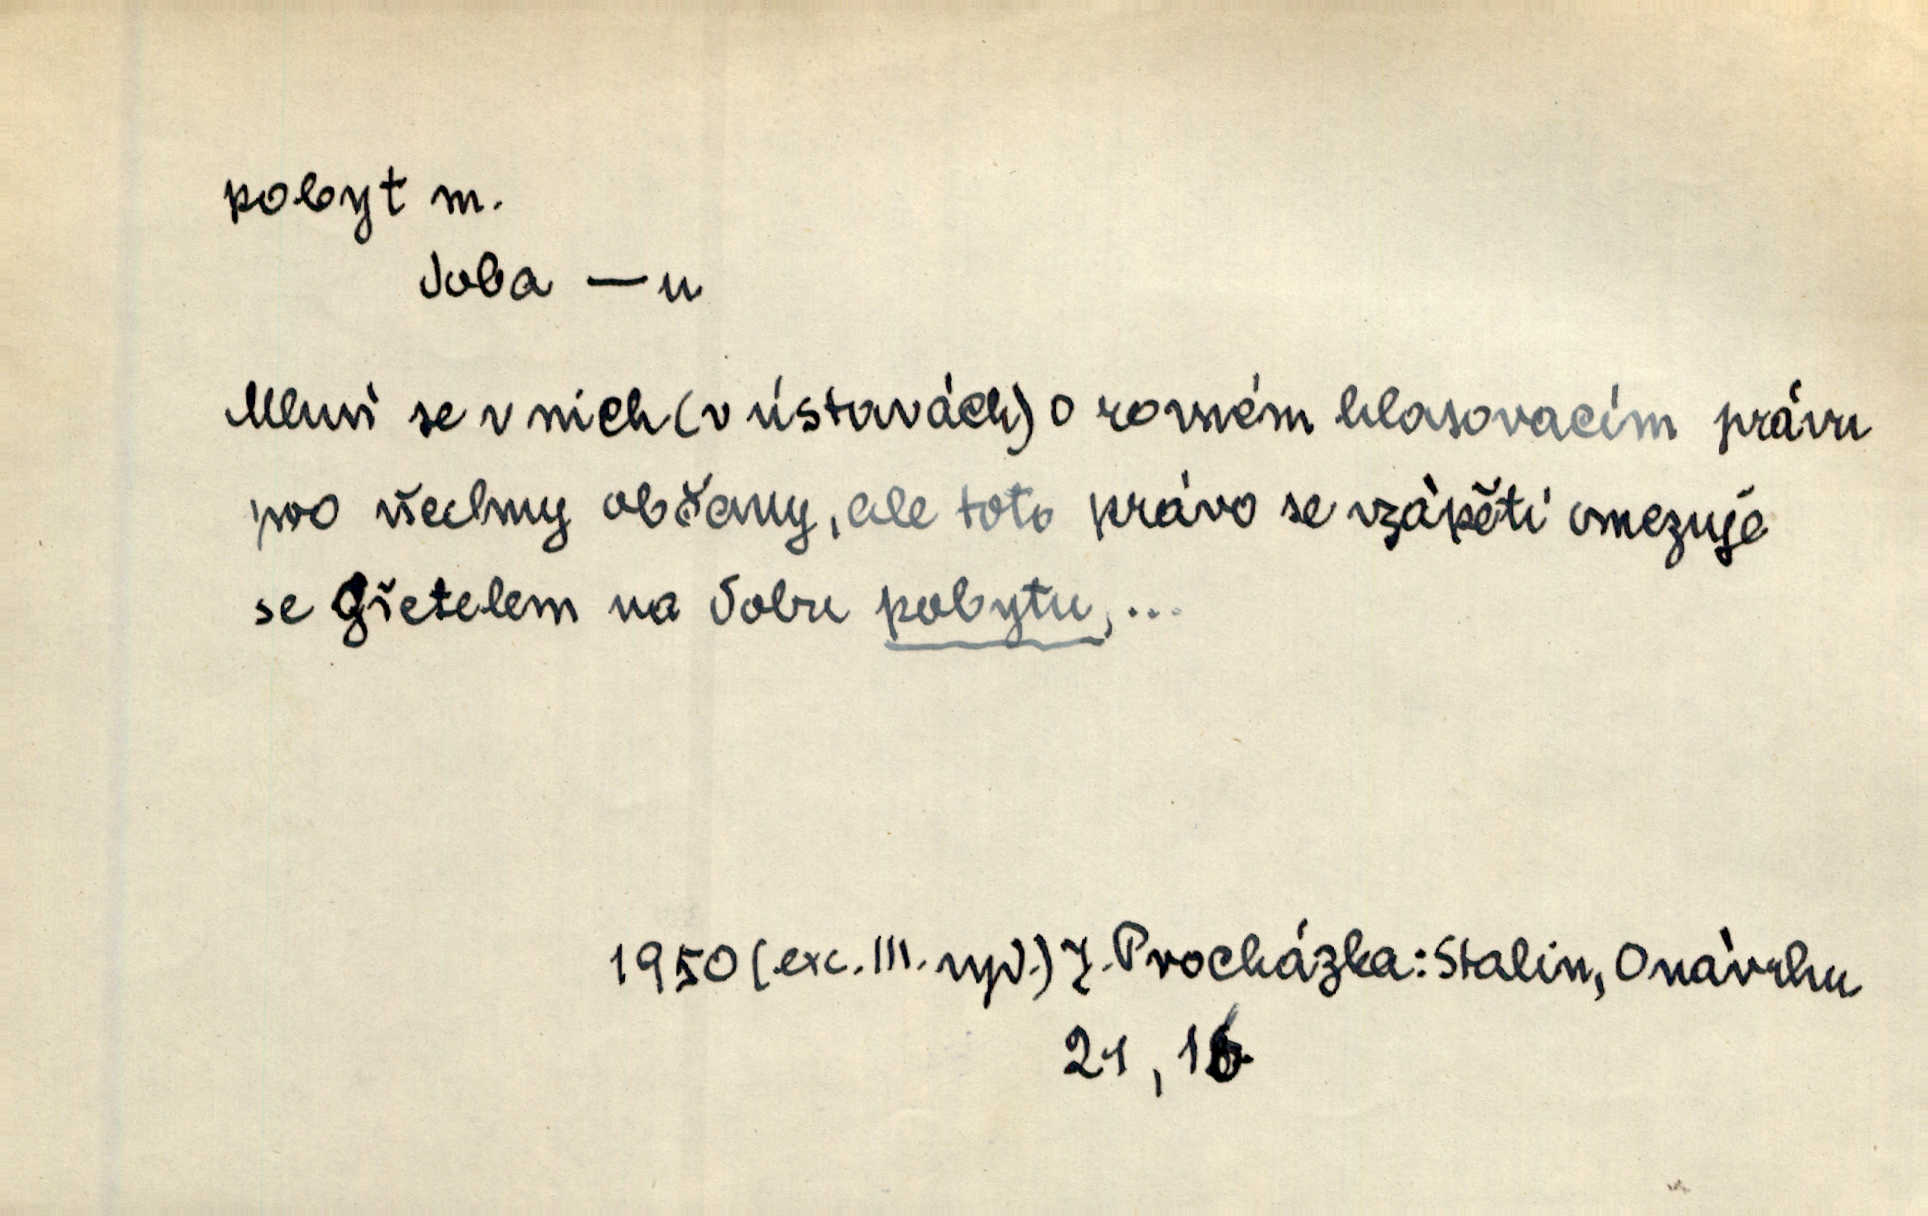 pobyt m.
doba — u
Mluví se v nich (v ústavách) o rovném hlasovacím právu
pro všechny občany, ale toto právo se vzápětí omezuje
se zřetelem na dobu pobytu, ...
1950 (exc. III. vyd.) J. Procházka: Stalin, O návrhu
21, 16